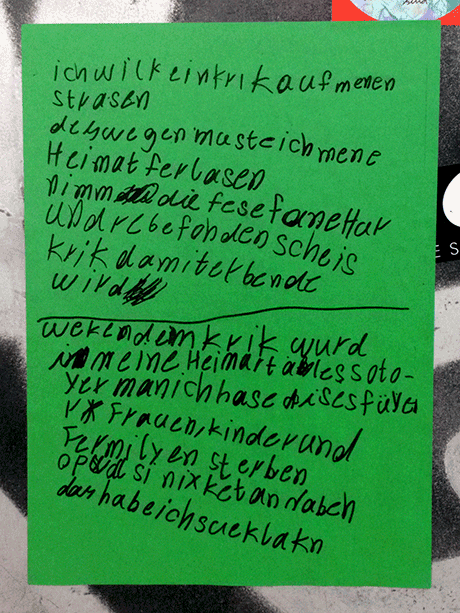 ich wilkeinkrik auf menen
strasen
deswegen musteich mene
Heimat ferlasen
nimm die fese fane Hur
und rebe fon den scheis
krik damit er bende
wird
wekendem krik wurd
in meine Heimart alles so to-
yer manich hase dises füler
r Frauen, kinder und
Fermilyen sterben
opwal si nix ketan haben
das habe ich sueklakn